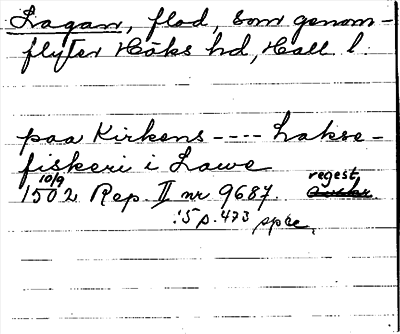 Lagan, flod, som genom-
flyter Höks hd, Hall. l.
paa Kirkens ---- Lakse-
fiskeri i Lawe
10/9 regest
1502 Rep. II nr 9687. avskr.
:5 p. 473